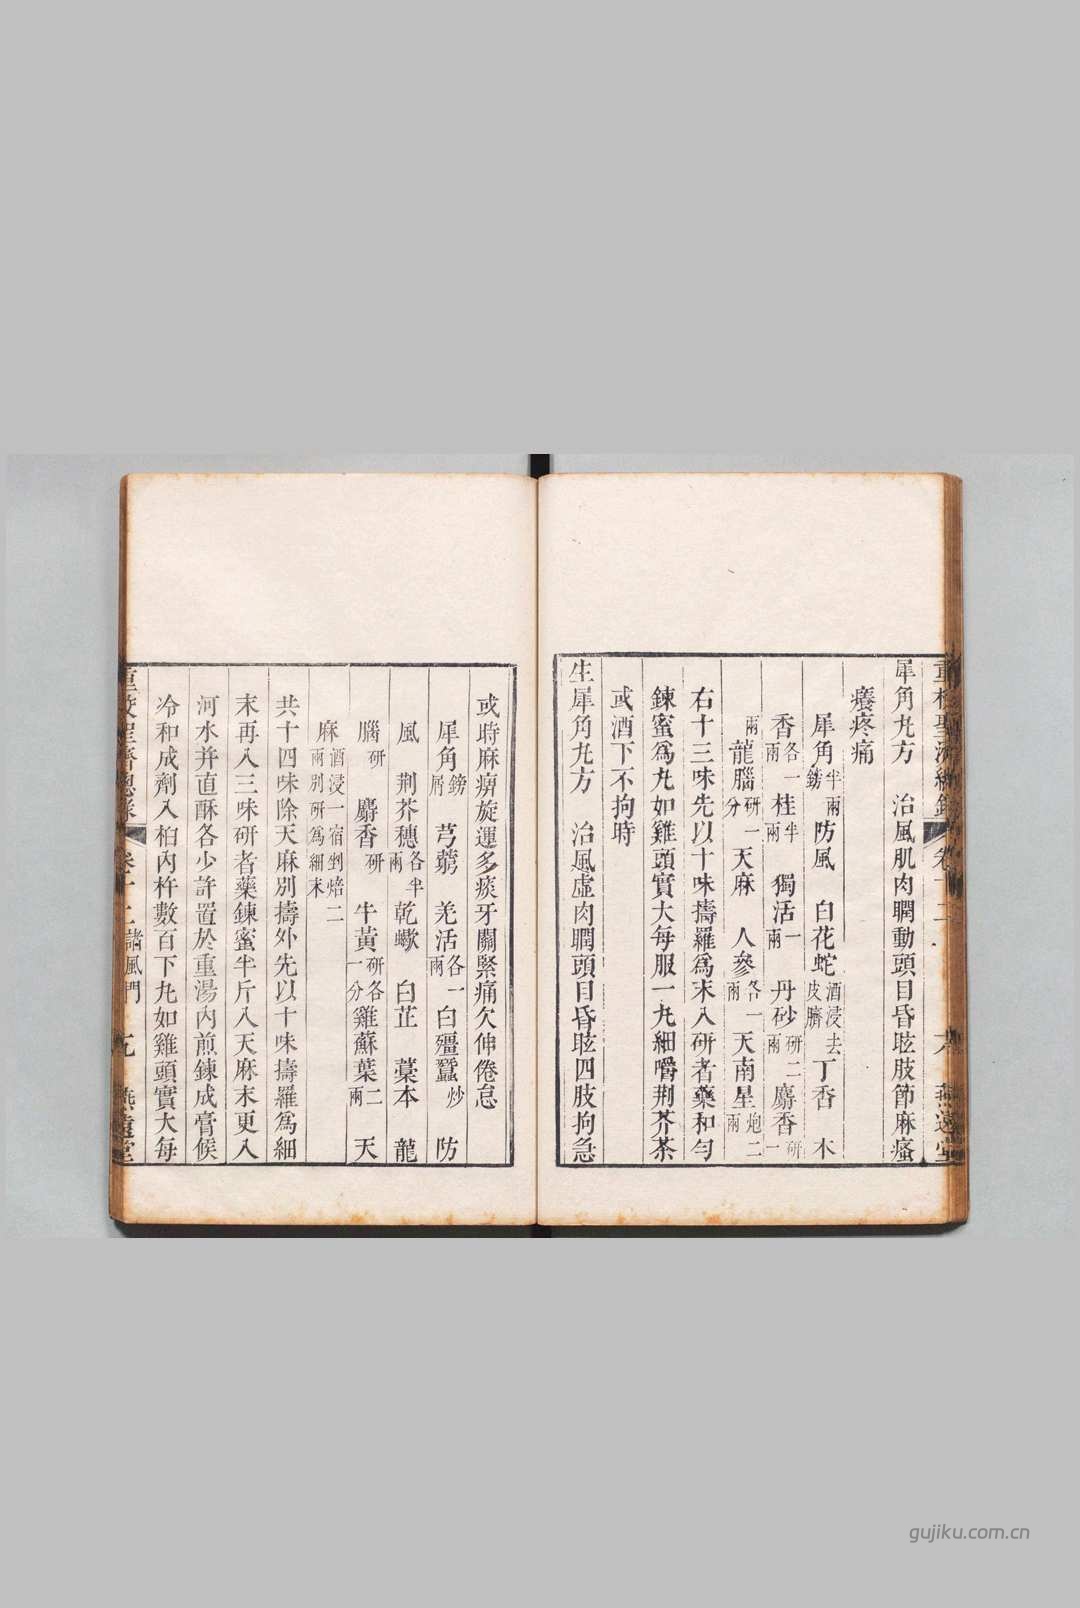 犀角丸方　治風肌肉瞤動頭目昏眩肢節麻瘙
癢疼痛
犀角鎊半兩防風　白花蛇酒浸去皮臍丁香　木
香各一兩桂半兩　獨活一兩　丹砂研二兩麝香研一
兩龍腦研一分天麻　人參各一兩天南星炮二兩
右十三味先以十味擣羅爲末入研者藥和勻
鍊蜜爲丸如雞頭實大每服一丸細嚼荆芥茶
或酒下不拘時
生犀角丸方　治風虛肉瞤頭目昏眩四肢拘急
或時麻痹旋運多痰牙關緊痛欠伸倦怠
犀角鎊屑　芎藭　羌活各一兩　白殭蠶炒　防
風　荆芥穗各半兩　乾蠍　白芷　藁本　龍
腦研　麝香研　牛黃研各一分　雞蘇葉二兩　天
麻酒浸一宿剉焙二兩別研爲細末
共十四味除天麻別擣外先以十味擣羅爲細
末再入三味研者藥鍊蜜半斤入天麻末更入
河水并直酥各少許置於重湯內煎鍊成膏候
冷和成劑入柏內杵數百下丸如雞頭實大每
卷十二諸風門　九　燕遠堂
gujiku.com.cn